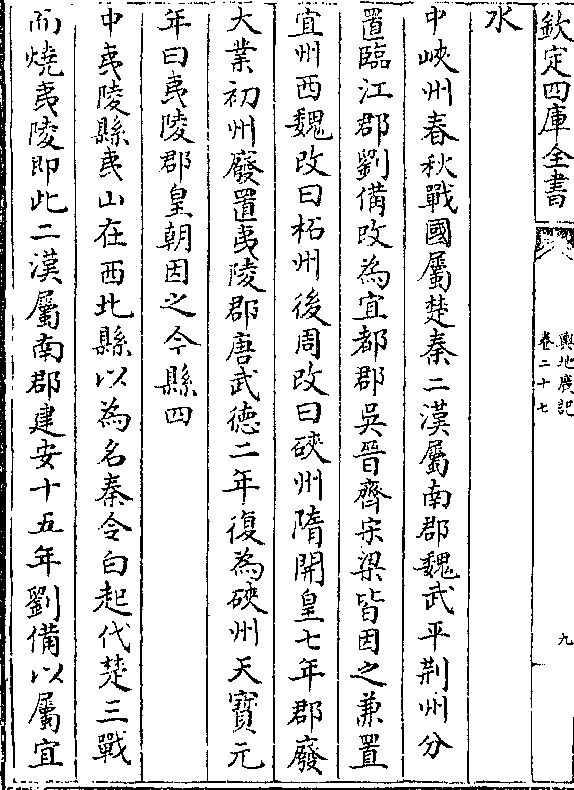 欽定四庫全書
輿地廣記
卷二十七
九
水
中峽州春秋戰國屬楚秦二漢屬南郡魏武平荆州分
置臨江郡劉備改為宜都郡吳晉齊宋梁皆因之兼置
宜州西魏改曰柘州後周改曰硤州隋開皇七年郡廢
大業初州廢置夷陵郡唐武徳二年復為硤州天寳元
年曰夷陵郡皇朝因之今縣四
中夷陵縣夷山在西北縣以為名秦令白起代楚三戰
而燒夷陵即此二漢屬南郡建安十五年劉備以屬宜